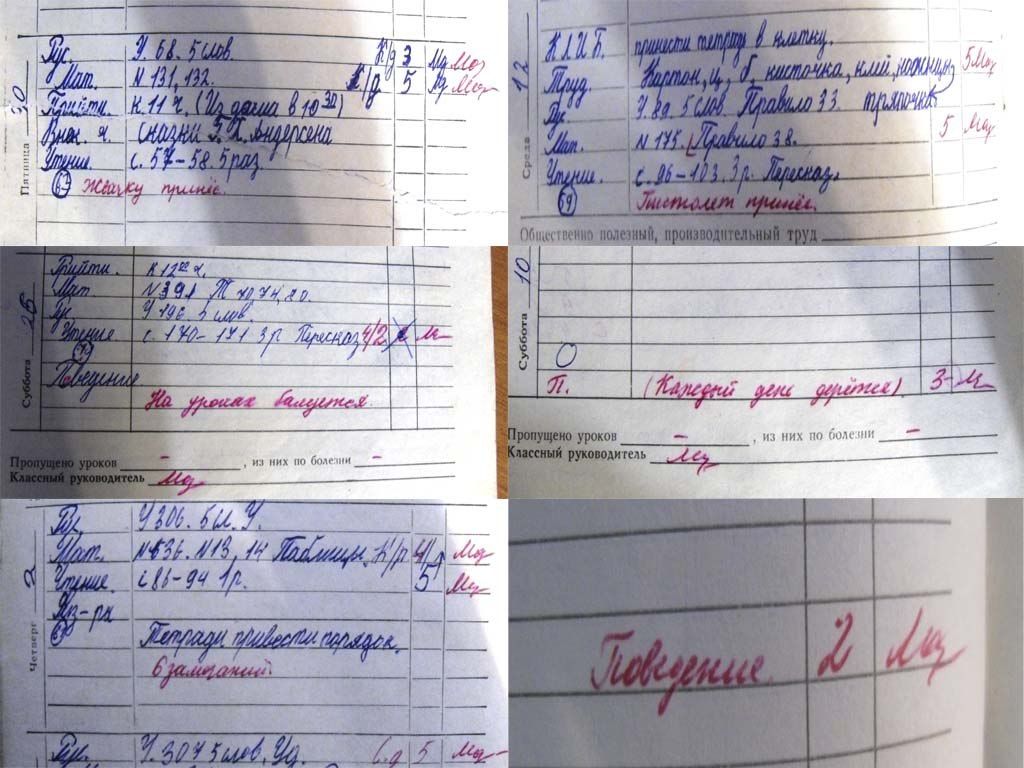 Пятница 30
Рус. У. 68. 5 слов. К/д 3
Мат. N 131, 132. К/р 5
Прийти к 11 ч. (Из дома в 10 30)
Внек. ч. Сказки Г. Х. Андерсена
Чтение. с. 57-58. 5 раз
67 Жвачку принёс.
Среда 12
К Л И Б. принести тетрадь в клетку.
Труд. Картон, ц. б., кисточка, клей, ножницы, 5
тряпочка
Рус У. 89. 5 слов. Правило 33.
Мат. N 175. Правило 38. 5
Чтение. с. 96-103. 3 р. Пересказ.
69 Пистолет принёс.
Общественно полезный, производительный труд
Суббота 26
Прийти. к 12 00 ч.
Мат. N 391
Рус. У 196. 5 слов.
Чтение. с. 170-171 3 р Пересказ 4/2
Поведение
На уроках балуется.
Пропущено уроков – , из них по болезни –
Классный руководитель
Суббота 10
П. (Каждый день дерётся). 3-
Пропущено уроков – , из них по болезни –
Классный руководитель
Четверг 2
Рус. У 306. 5 сл. У.
Мат. N 636. N 13, 14 Таблицы. К/р 4/
Чтение. с 86-94 1 р. 5
Физ-ра
Тетради привести порядок.
6 замечаний.
Рус. У. 307 5 слов. Уд. С.д 5
Поведение 2